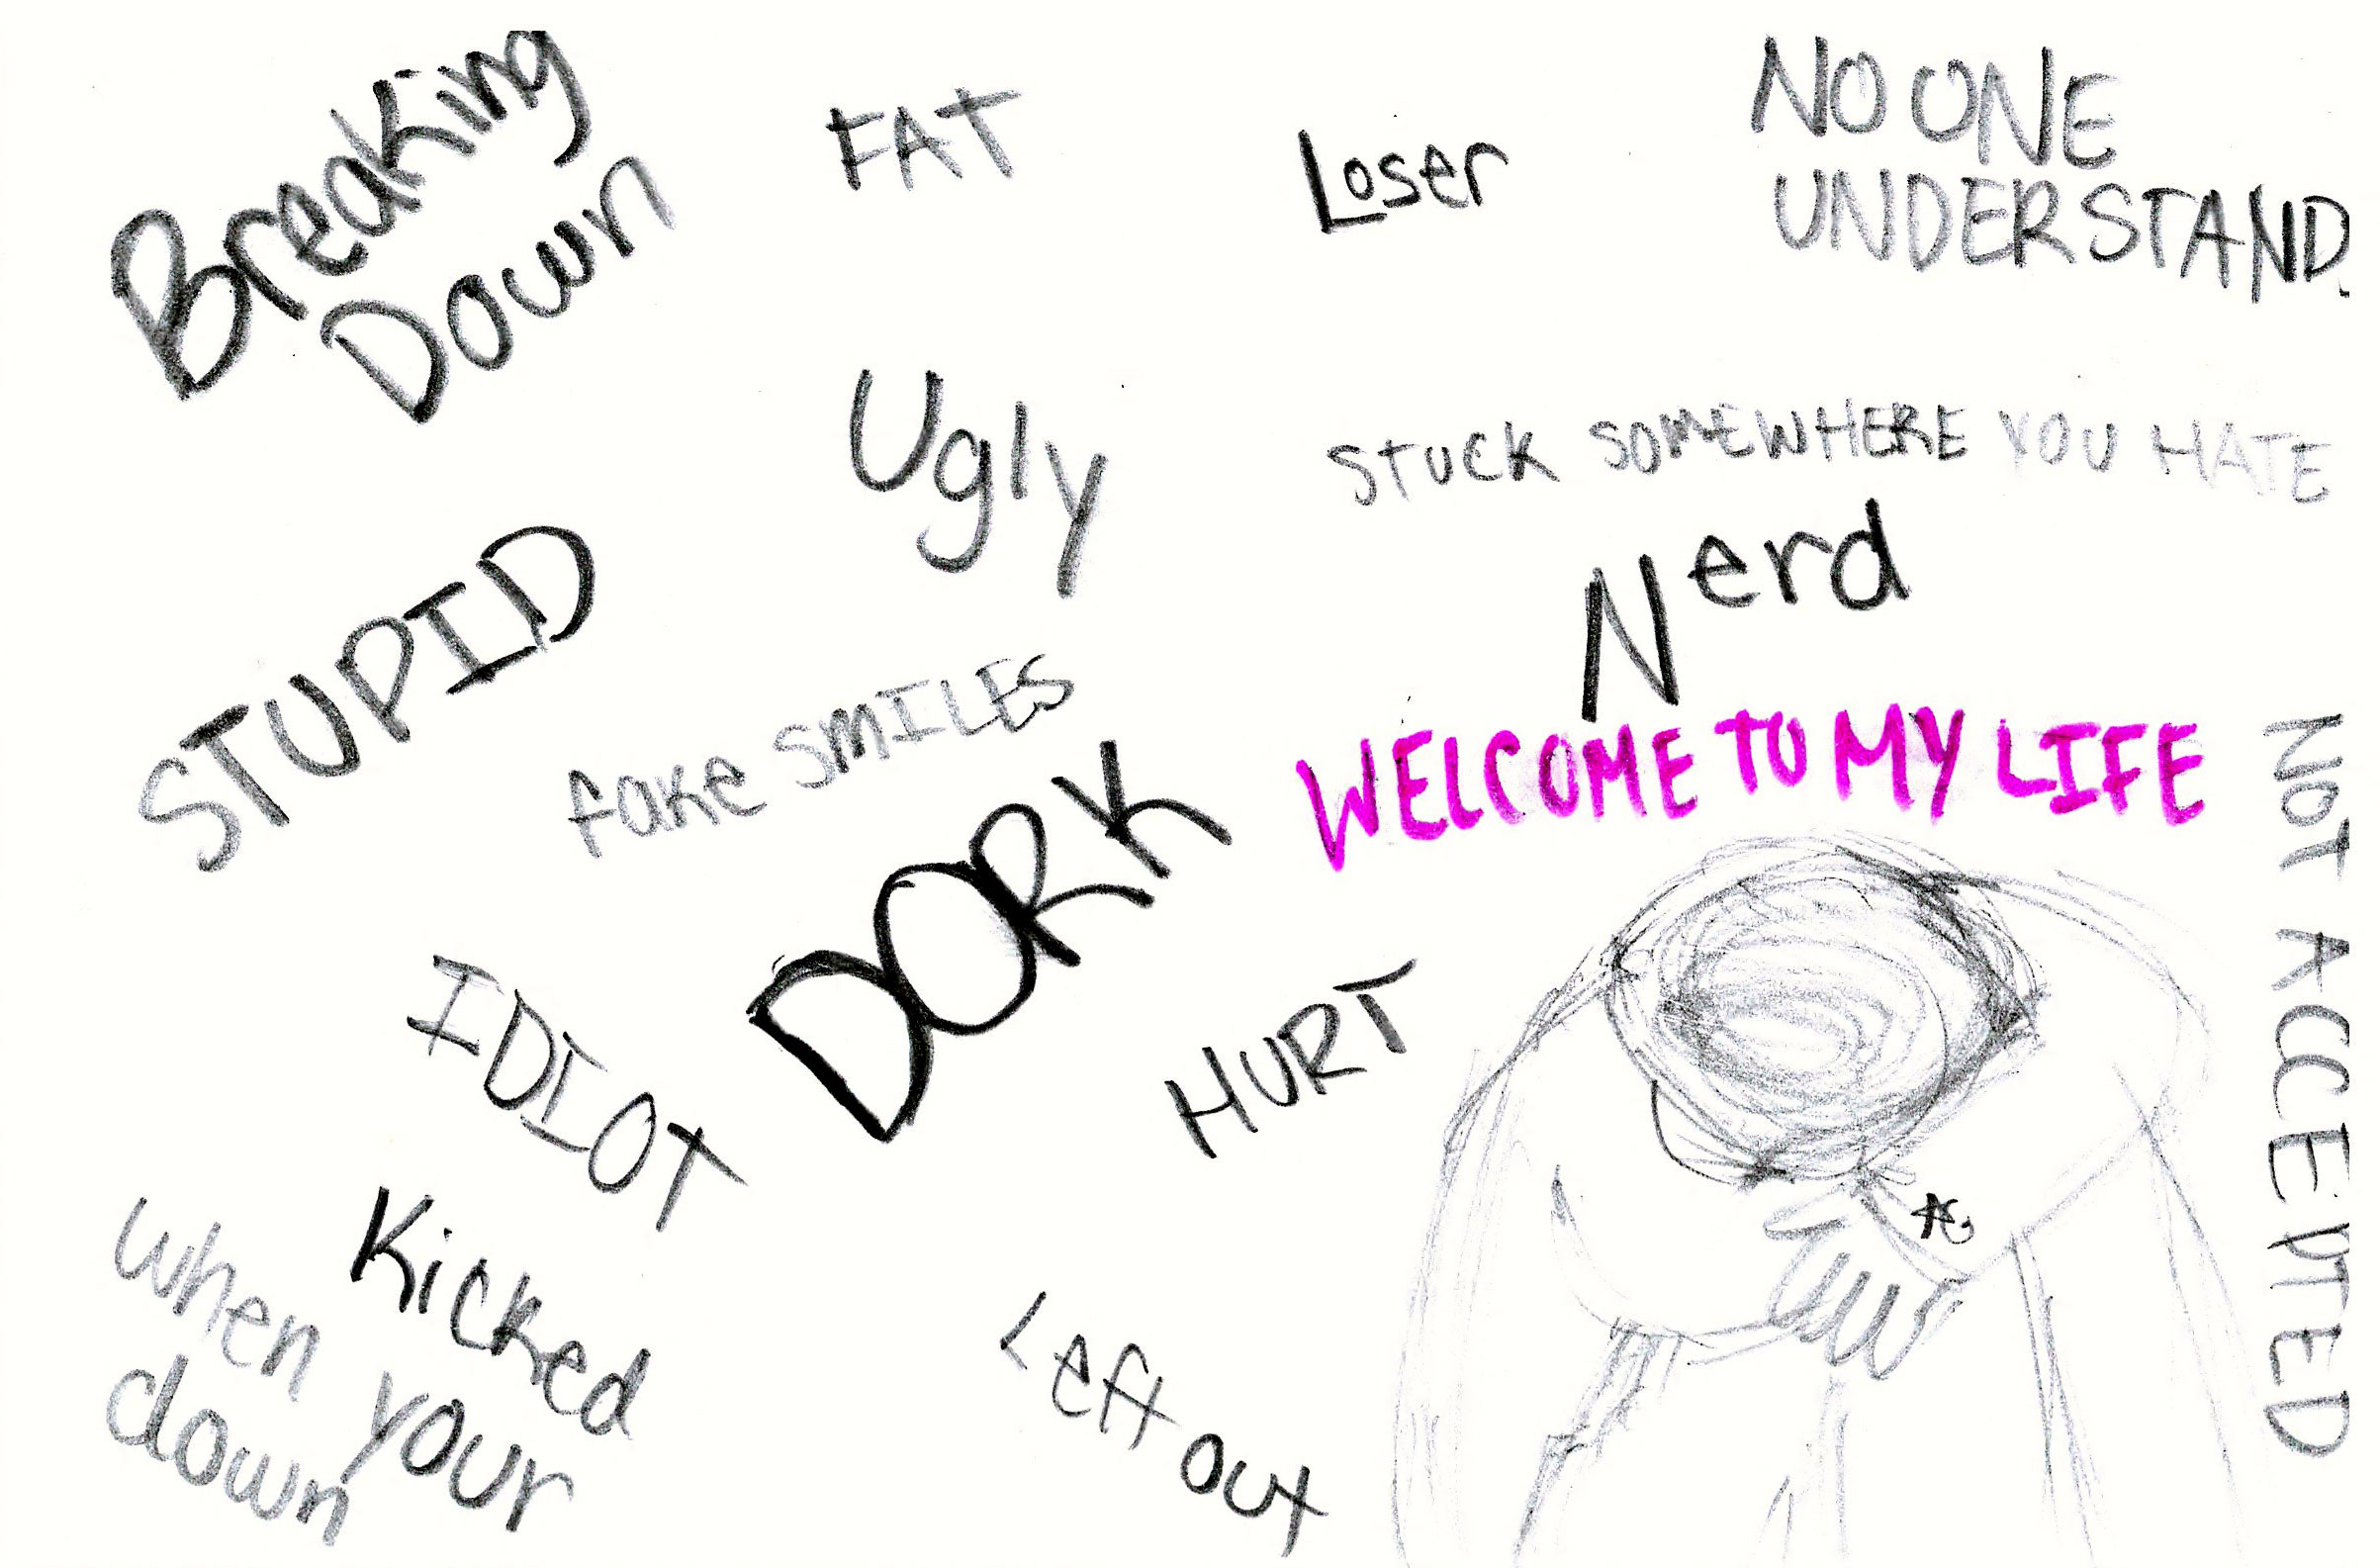 Breaking
Down
FAT
Loser
NO ONE
UNDERSTAND.
Ugly
STUCK SOMEWHERE YOU HATE
Nerd
STUPID
fake SMILES
WELCOME TO MY LIFE
DORK
NOT ACCEPTED
IDIOT
HURT
Kicked
when your
down
Left out